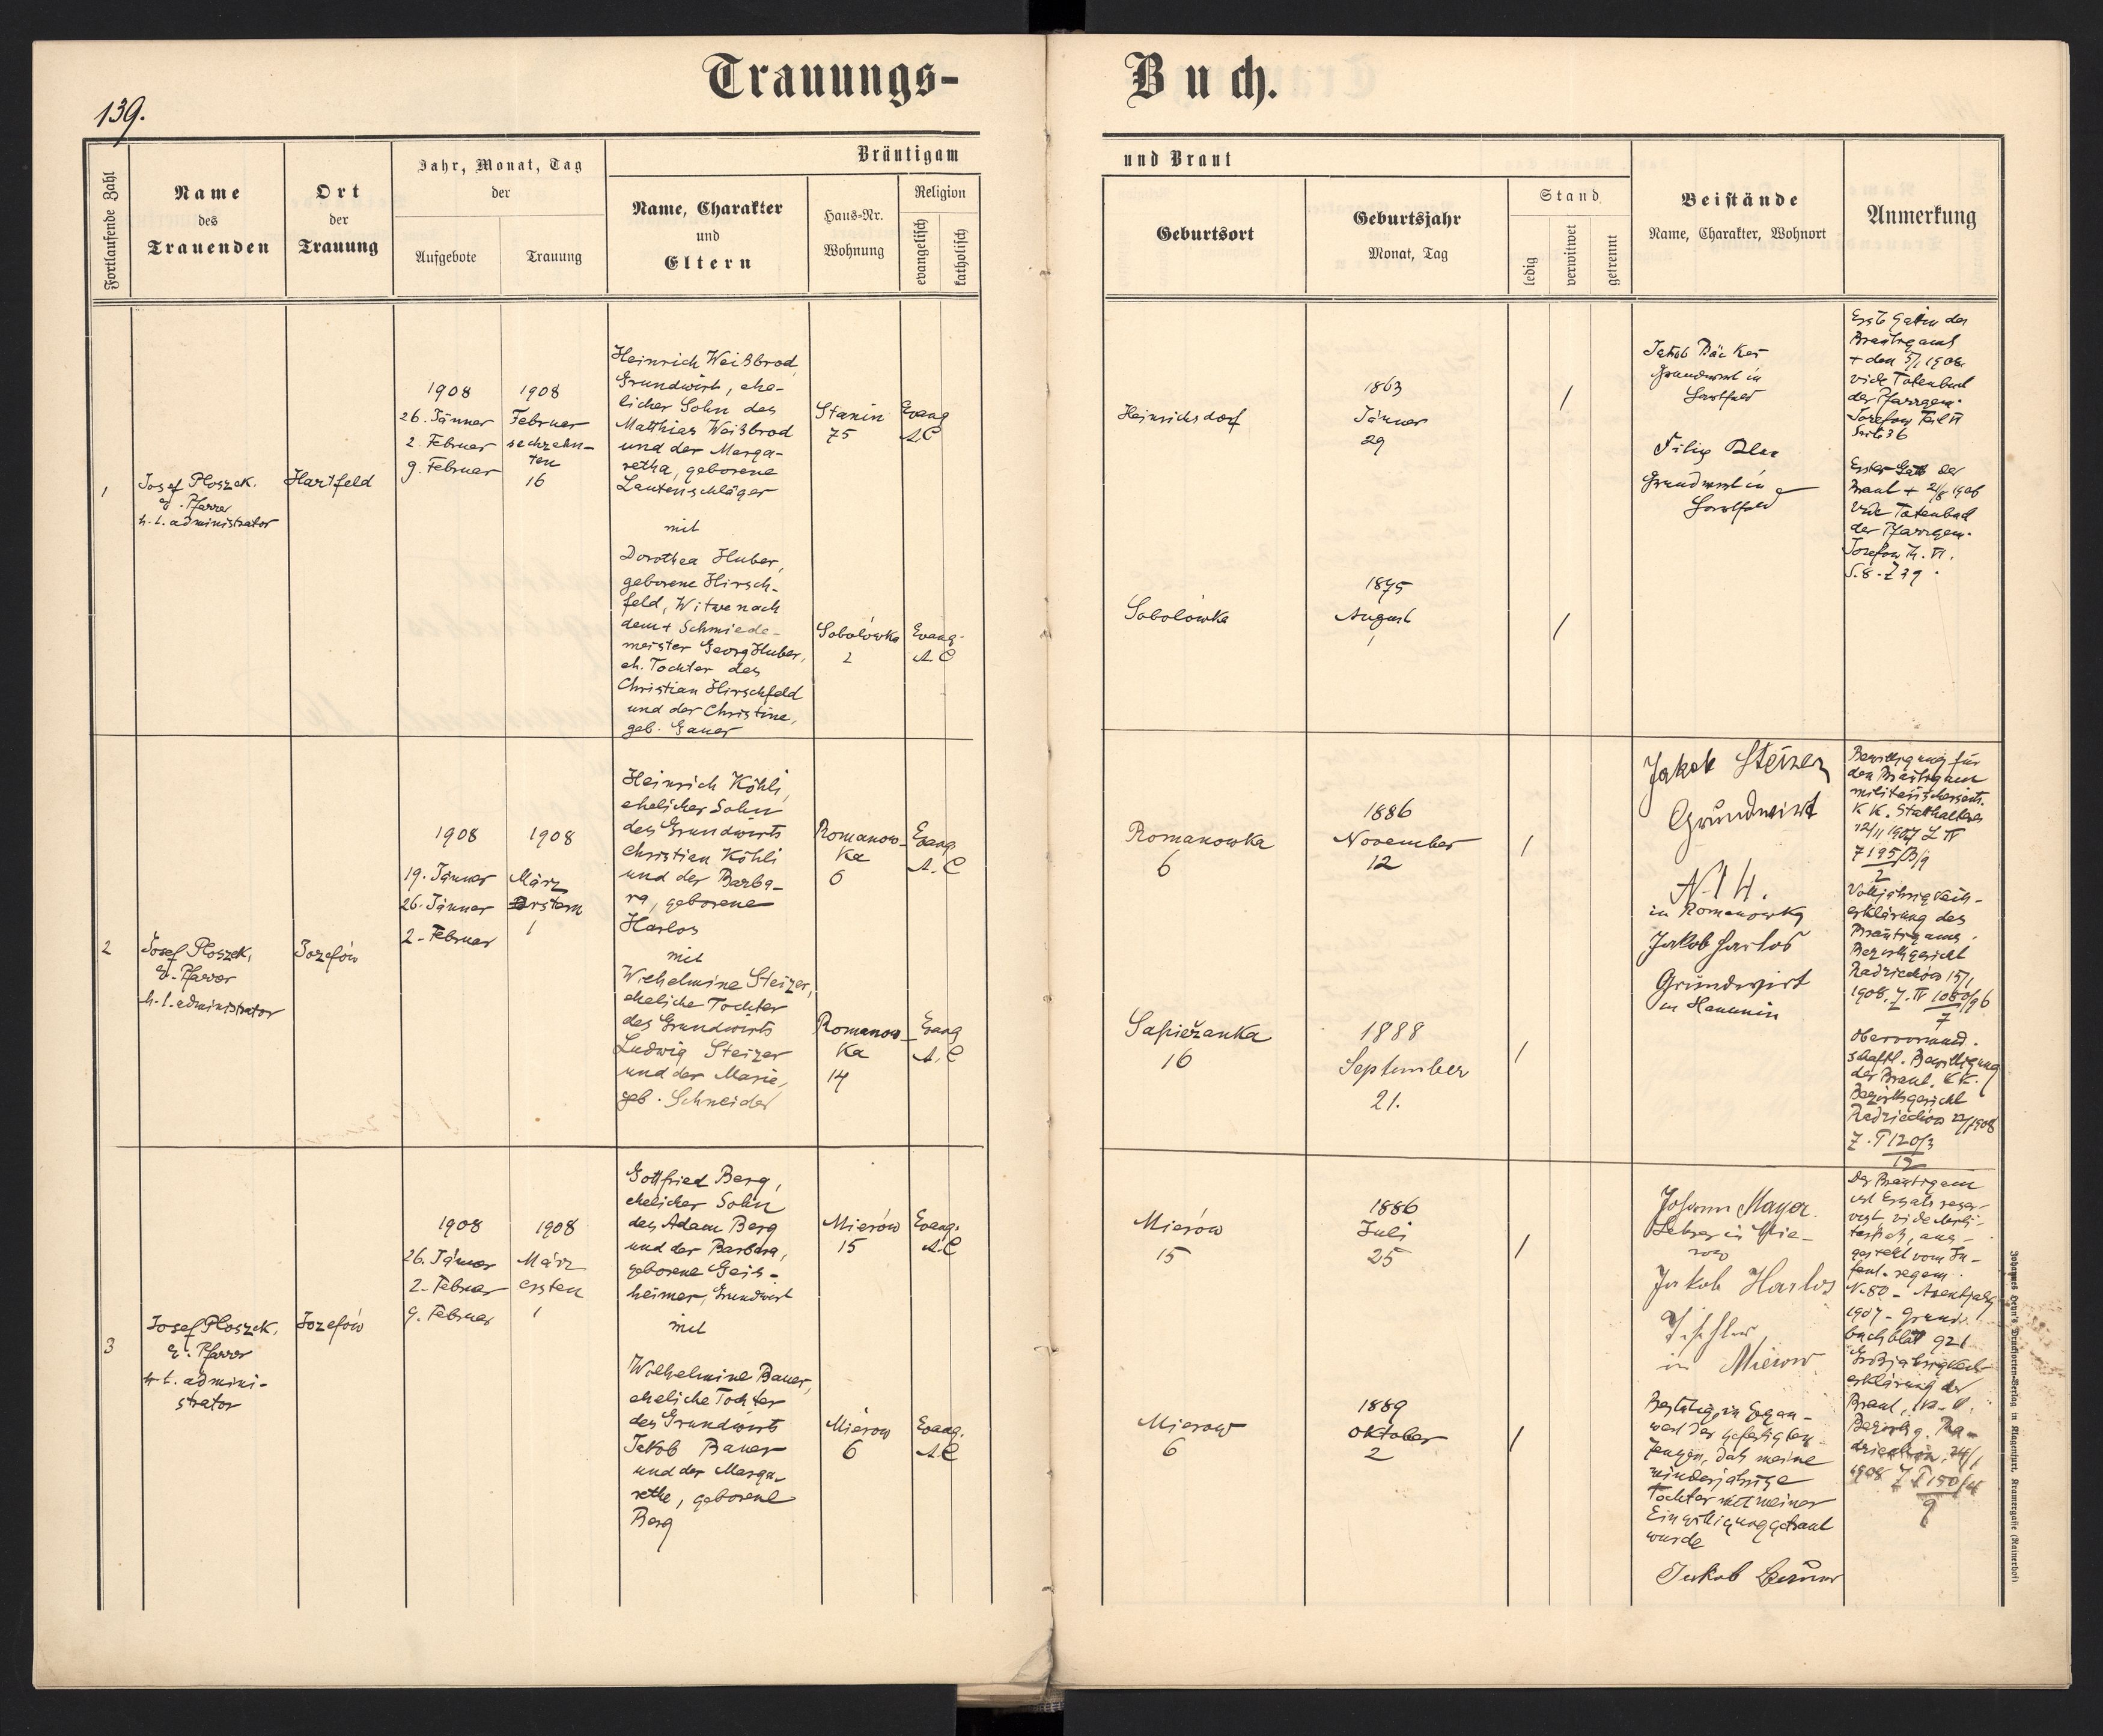 Trauungs-
Buch.
139.
Fortlaufende Zahl
Name
des
Trauenden
Ort
der
Trauung
Jahr, Monat, Tag
der
Aufgebote
Trauung
Bräutigam
Name, Charakter
und
Eltern
Haus-Nr.
Wohnung
Religion
evangelisch
katholisch
und Braut
Geburtsort
Geburtsjahr
Monat, Tag
Stand
ledig
verwitwet
getrennt
Beistände
Name, Charakter, Wohnort
Anmerkung
1
Josef Ploszek,
e. Pfarrer
h. t. administrator
Hartfeld
1908
26. Jänner
2. Februar
9. Februar
1908
Februar
sechzehn-
ten
16
Heinrich Weißbrod
Grundwirt, ehe-
licher Sohn des
Matthias Weißbrod
und der Marga-
retha, geborene
Lautenschläger
mit
Dorothea Huber,
geborene Hirsch-
feld, Witwe nach
dem + Schmiede-
meister Georg Huber,
eh. Tochter des
Christian Hirschfeld
und der Christine,
geb. Gauer
Stanin
75
Evang
AC
Sobolówka
2
Evang.
A.C
Heinrichsdorf
1863
Jänner
29
/
Jakob Bäcker
Grundwirt in
Hartfeld
Filip
Grundwirt in
Hartfeld
Erste Gattin des
Bräutigams
+ den 5/1 1908
vide Totenbuch
der Pfarrgem.
Josefow Teil VI
Seite 36
Erster Gatte der
Braut + 21/8 1906
vide Totenbuch
der Pfarrgem.
Josefow Th. VI.
S. 8. Z 39.
Sobolówka
1875
August
1
/
2
Josef Ploszek,
e. Pfarrer
h. t. administrator
Jozefów
1908
19. Jänner
26. Jänner
2. Februar
1908
März
Erstem
1
Heinrich Köhli,
ehelicher Sohn
des Grundwirts
Christian Köhli
und der Barba-
ra, geborene
Harlos
mit
Wilhelmine Steizer,
eheliche Tochter
des Grundwirts
Ludwig Steizer
und der Marie,
geb. Schneider
Romanow-
ka
6
Evang
A. C
Romanow-
ka
14
Evang
A. C
Romanowka
6
1886
November
12
/
Sapieżanka
16
1888
September
21.
/
Jakob Steizer
Grundwirt
N 14.
in Romanowka
Jakob Harlos
Grundwirt
in Hanunin
Bewilligung für
den Bräutigam
militärischerseits.
K K. Statthalterei
12/11 1907 Z IV
7195/B/9
2
Volljährigkeits-
erklärung des
Bräutigams.
Bezirksgericht
Radziechów 15/1
1908. Z. IV 1080/96
7
Obervormund-
schaftl. Bewilligung
der Braut. KK.
Bezirksgericht
Radziechów 22/1 1908
Z. I 120/3
12
3
Josef Ploszek,
e. Pfarrer
h. t. admini-
strator
Jozefów
1908
26. Jänner
2. Februar
9. Februar
1908
März
ersten
1
Gottfried Berg,
ehelicher Sohn
des Adam Berg
und der Barbara,
geborene Geis-
heimer, Grundwirt
mit
Wilhelmine Bauer,
eheliche Tochter
des Grundwirts
Jakob Bauer
und der Marga-
rethe, geborene
Berg
Mierów
15
Evang.
A.C
Mierów
6
Evang.
A.C
Mierów
15
1886
Juli
25
/
Mierow
6
1889
Oktober
2
/
Johann Mayer
Lehrer in Mie-
row
Jakob Harlos
Tischler
in Mierow
Bestätige in Gegen-
wart der gefertigten
Zeugen, daß meine
minderjährige
Tochter mit meiner
Einwilligung getraut
wurde
Jakob Bauer
Der Bräutigam
ist Ersatzreser-
vist, vide
aus-
gestellt vom In-
fant. regem.
N. 80 -
1907 - Grund-
buchblatt 921
Großjährigkeits-
erklärung der
Braut,
Bezirksg. Ra-
dziechów 24/1
1908 Z I 150/4
9
Johannes Heyn's Drucksorten-Verlag in Klagenfurt, Kramergasse (Rainerhof)